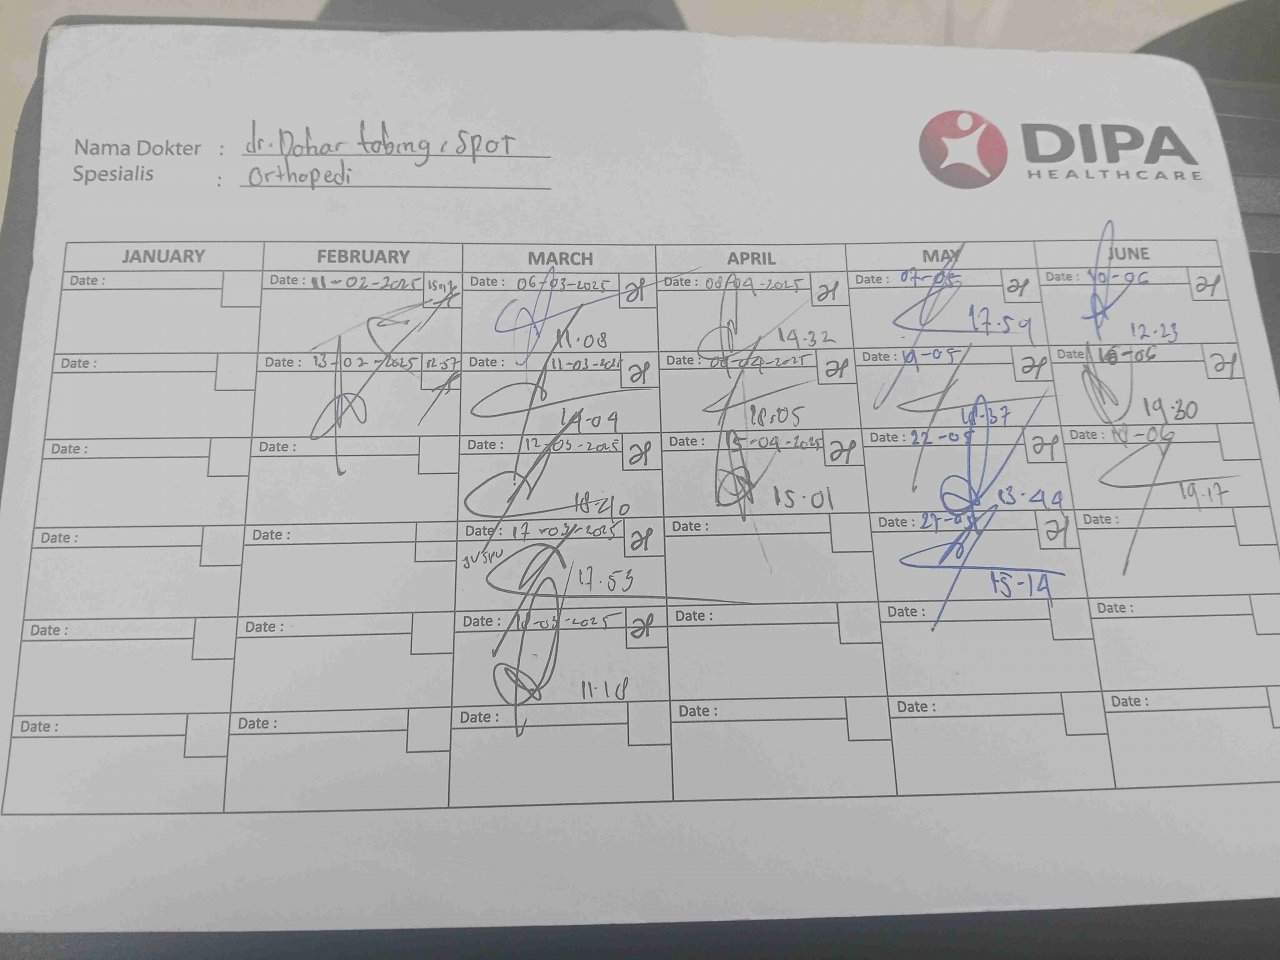 Nama Dokter : dr. Dohar tobing, SpOT
Spesialis : Orthopedi
DIPA
HEALTHCARE
JANUARY FEBRUARY MARCH APRIL MAY JUNE
Date : Date : 11-02-2025 Date : 06-03-2025 Date : 08-04-2025 Date : 07-05 Date : 10-06
11.08 14.32 17.59 12.23
Date : Date : 13-02-2025 12.57 Date : 11-03-2025 Date : Date : 19-05 Date :
19.04 18.05 18.37 19.30
Date : Date : Date : 12-03-2025 Date : 15-04-2025 Date : 22-05 Date :
18.40 15.01 13.44 19.17
Date : Date : Date : 17-03-2025 Date : Date : 27-05 Date :
17.53 15-14
Date : Date : Date : 18-03-2025 Date : Date : Date :
11.18
Date : Date : Date : Date : Date : Date :